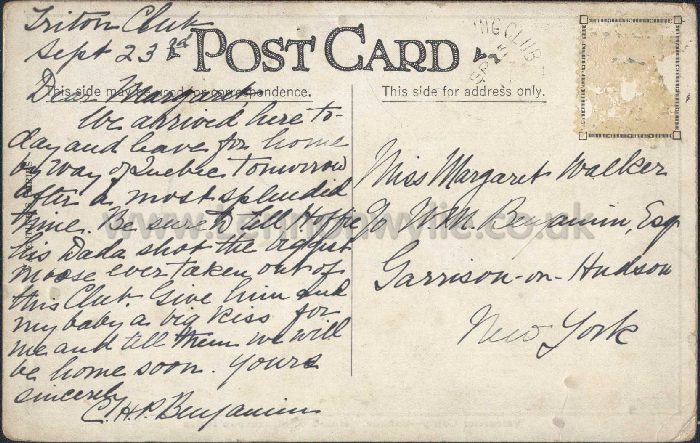 Triton Club
Sept 23rd
POST CARD
ING CLUB
This side may be used for correspondence.
This side for address only.
Dear Margaret,
We arrived here to-
day and leave for home
by way of Quebec tomorrow
after a most splendid
time. Be sure & tell
his Dada shot the biggest
moose ever taken out of
this Club. Give him and
my baby a big kiss for
me and tell them we will
be home soon. Yours
sincerely
C.H.P. Benjamin
Miss Margaret Walker
% W.M. Benjamin, Esq
Garrison-on-Hudson
New York